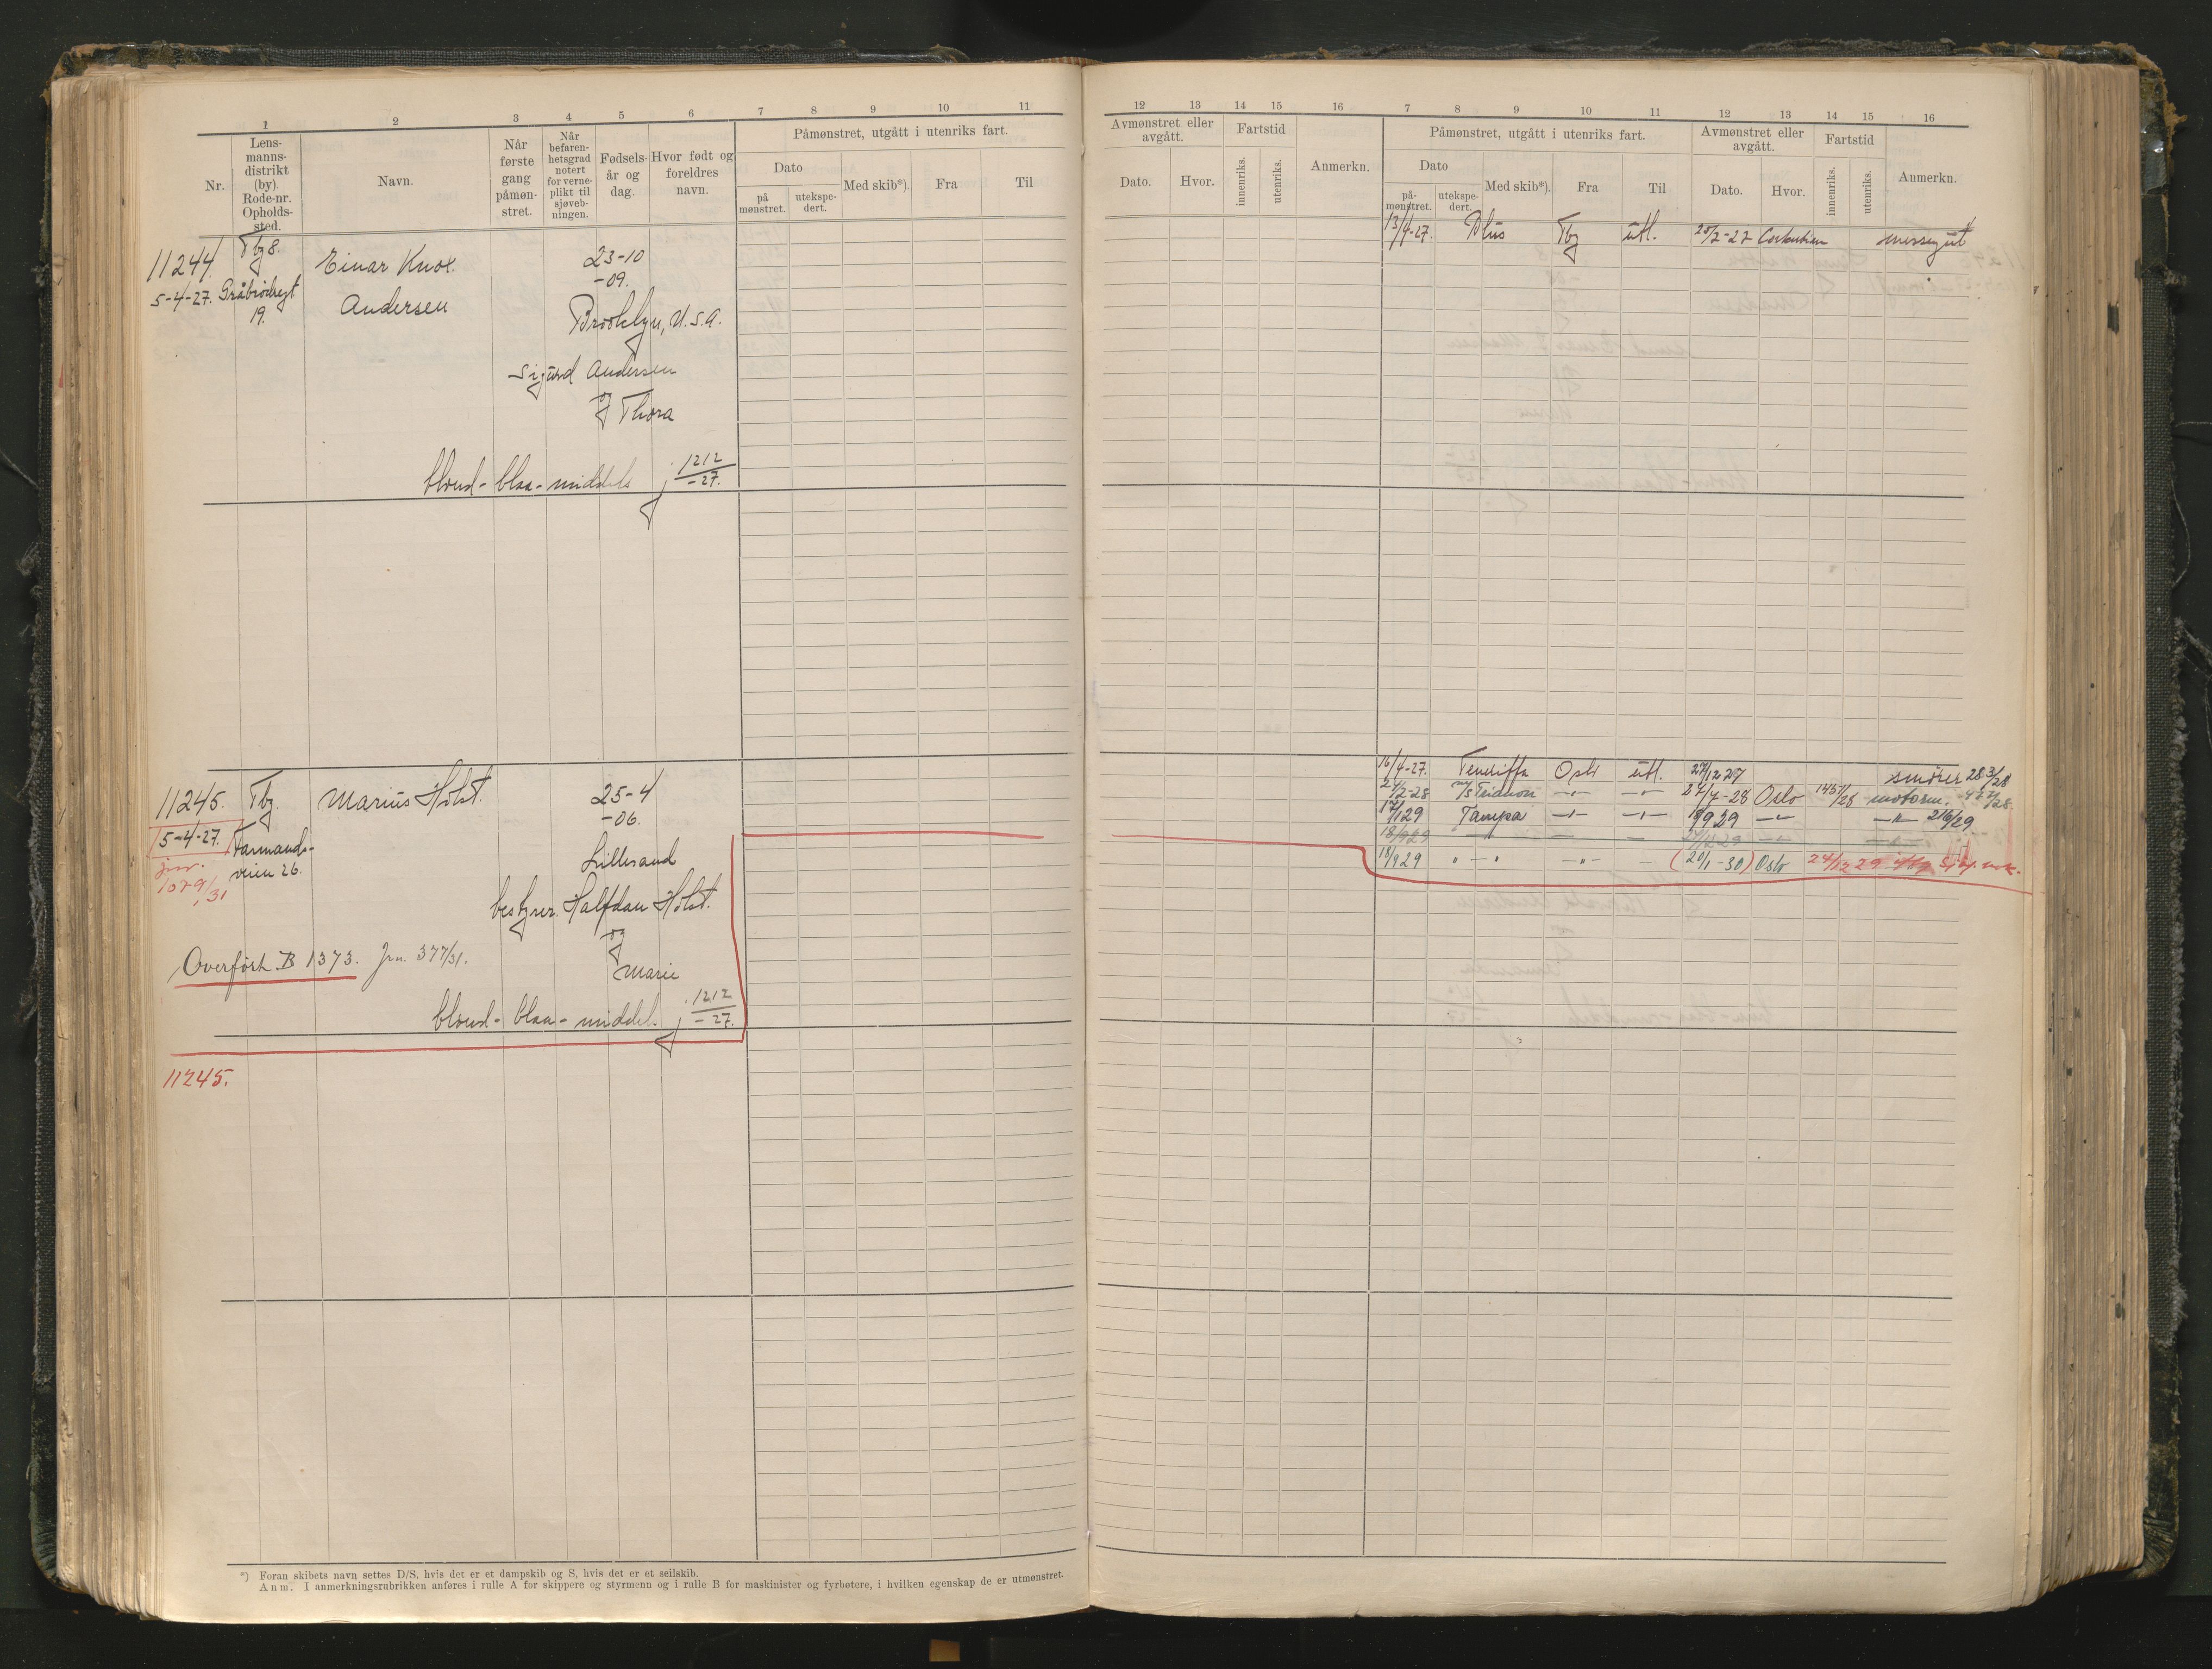 1 2 3 4 5 6 7 8 9 10 11
Nr.
Lens-
manns-
distrikt
(by).
Rode-nr.
Opholds-
sted.
Navn.
Når
første
gang
påmøn-
stret.
Når
befaren-
hetsgrad
notert
for verne-
plikt til
sjøveb-
ningen.
Fødsels-
år og
dag.
Hvor født og
foreldres
navn.
Påmønstret, utgått i utenriks fart.
Dato
på
mønstret.
utekspe-
dert.
Med skib*).
Fra
Til
11244. Tbg 8. Einar Knox. 23-10
-09.
5-4-27.
19. Andersen
Brooklyn, U.S.A.
Sigurd Andersen
og Thora
blond - blaa - middels j 1212
-27.
11245. Tbg. Marius Holst. 25-4
-06.
5-4-27. Farmands-
veien 26.
jnr.
1079/31
Lillesand
bestyrer Halfdan Holst.
og
Marie
Overført B 1373. Jrn. 377/31.
blond - blaa - middel. j 1212
-27.
11245.
*) Foran skibets navn settes D/S, hvis det er et dampskib og S, hvis det er et seilskib.
Anm. I anmerkningsrubrikken anføres i rulle A for skippere og styrmenn og i rulle B for maskinister og fyrbøtere, i hvilken egenskap de er utmønstret.
12 13 14 15 16 7 8 9 10 11 12 13 14 15 16
Avmønstret eller
avgått.
Dato.
Hvor.
Fartstid
innenriks.
utenriks.
Anmerkn.
Påmønstret, utgått i utenriks fart.
Dato
på-
mønstret.
utekspe-
dert.
Med skib*).
Fra
Til
Avmønstret eller
avgått.
Dato.
Hvor.
Fartstid
innenriks.
utenriks.
Anmerkn.
13/4-27. Tbg utl. messegut
16/4-27. Teneriffa Oslo utl. 27/12 27 smører 28 3/28
2/2-28 M/S Trianon -"- -"- 27/7-28 Oslo 1457/28 motorm.
17/1 29 Tampa -"- -"- 18/9 29 -"- -"- 216/29
18/9 29 -"- -"-
18/9 29 " -"- -"- - (20/1-30) Oslo 24/12 29